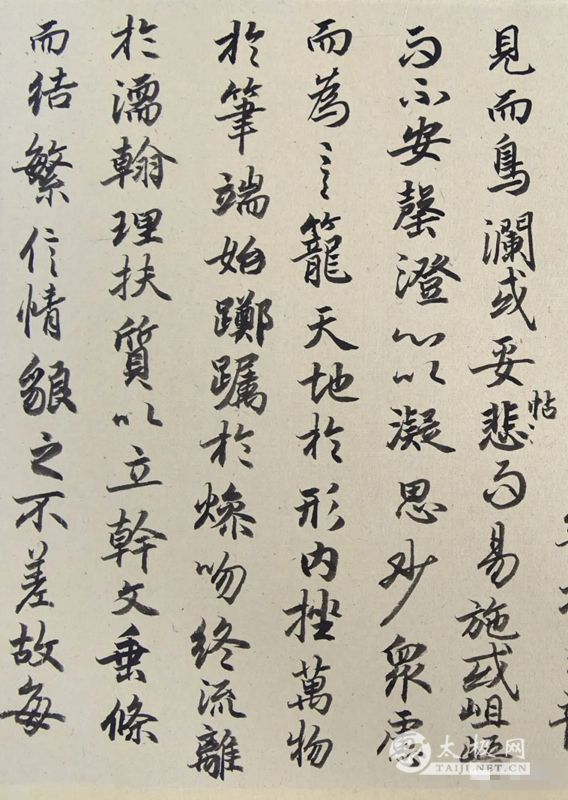 見而鳥瀾或妥悲而易施或岨峿
怗
而不安罄澄心以凝思妙衆慮
而為言籠天地於形内挫萬物
於筆端始躑躅於燥吻終流離
於濡翰理扶質以立幹文垂條
而結繁信情貌之不差故每
太极网
TAIJI.NET.CN